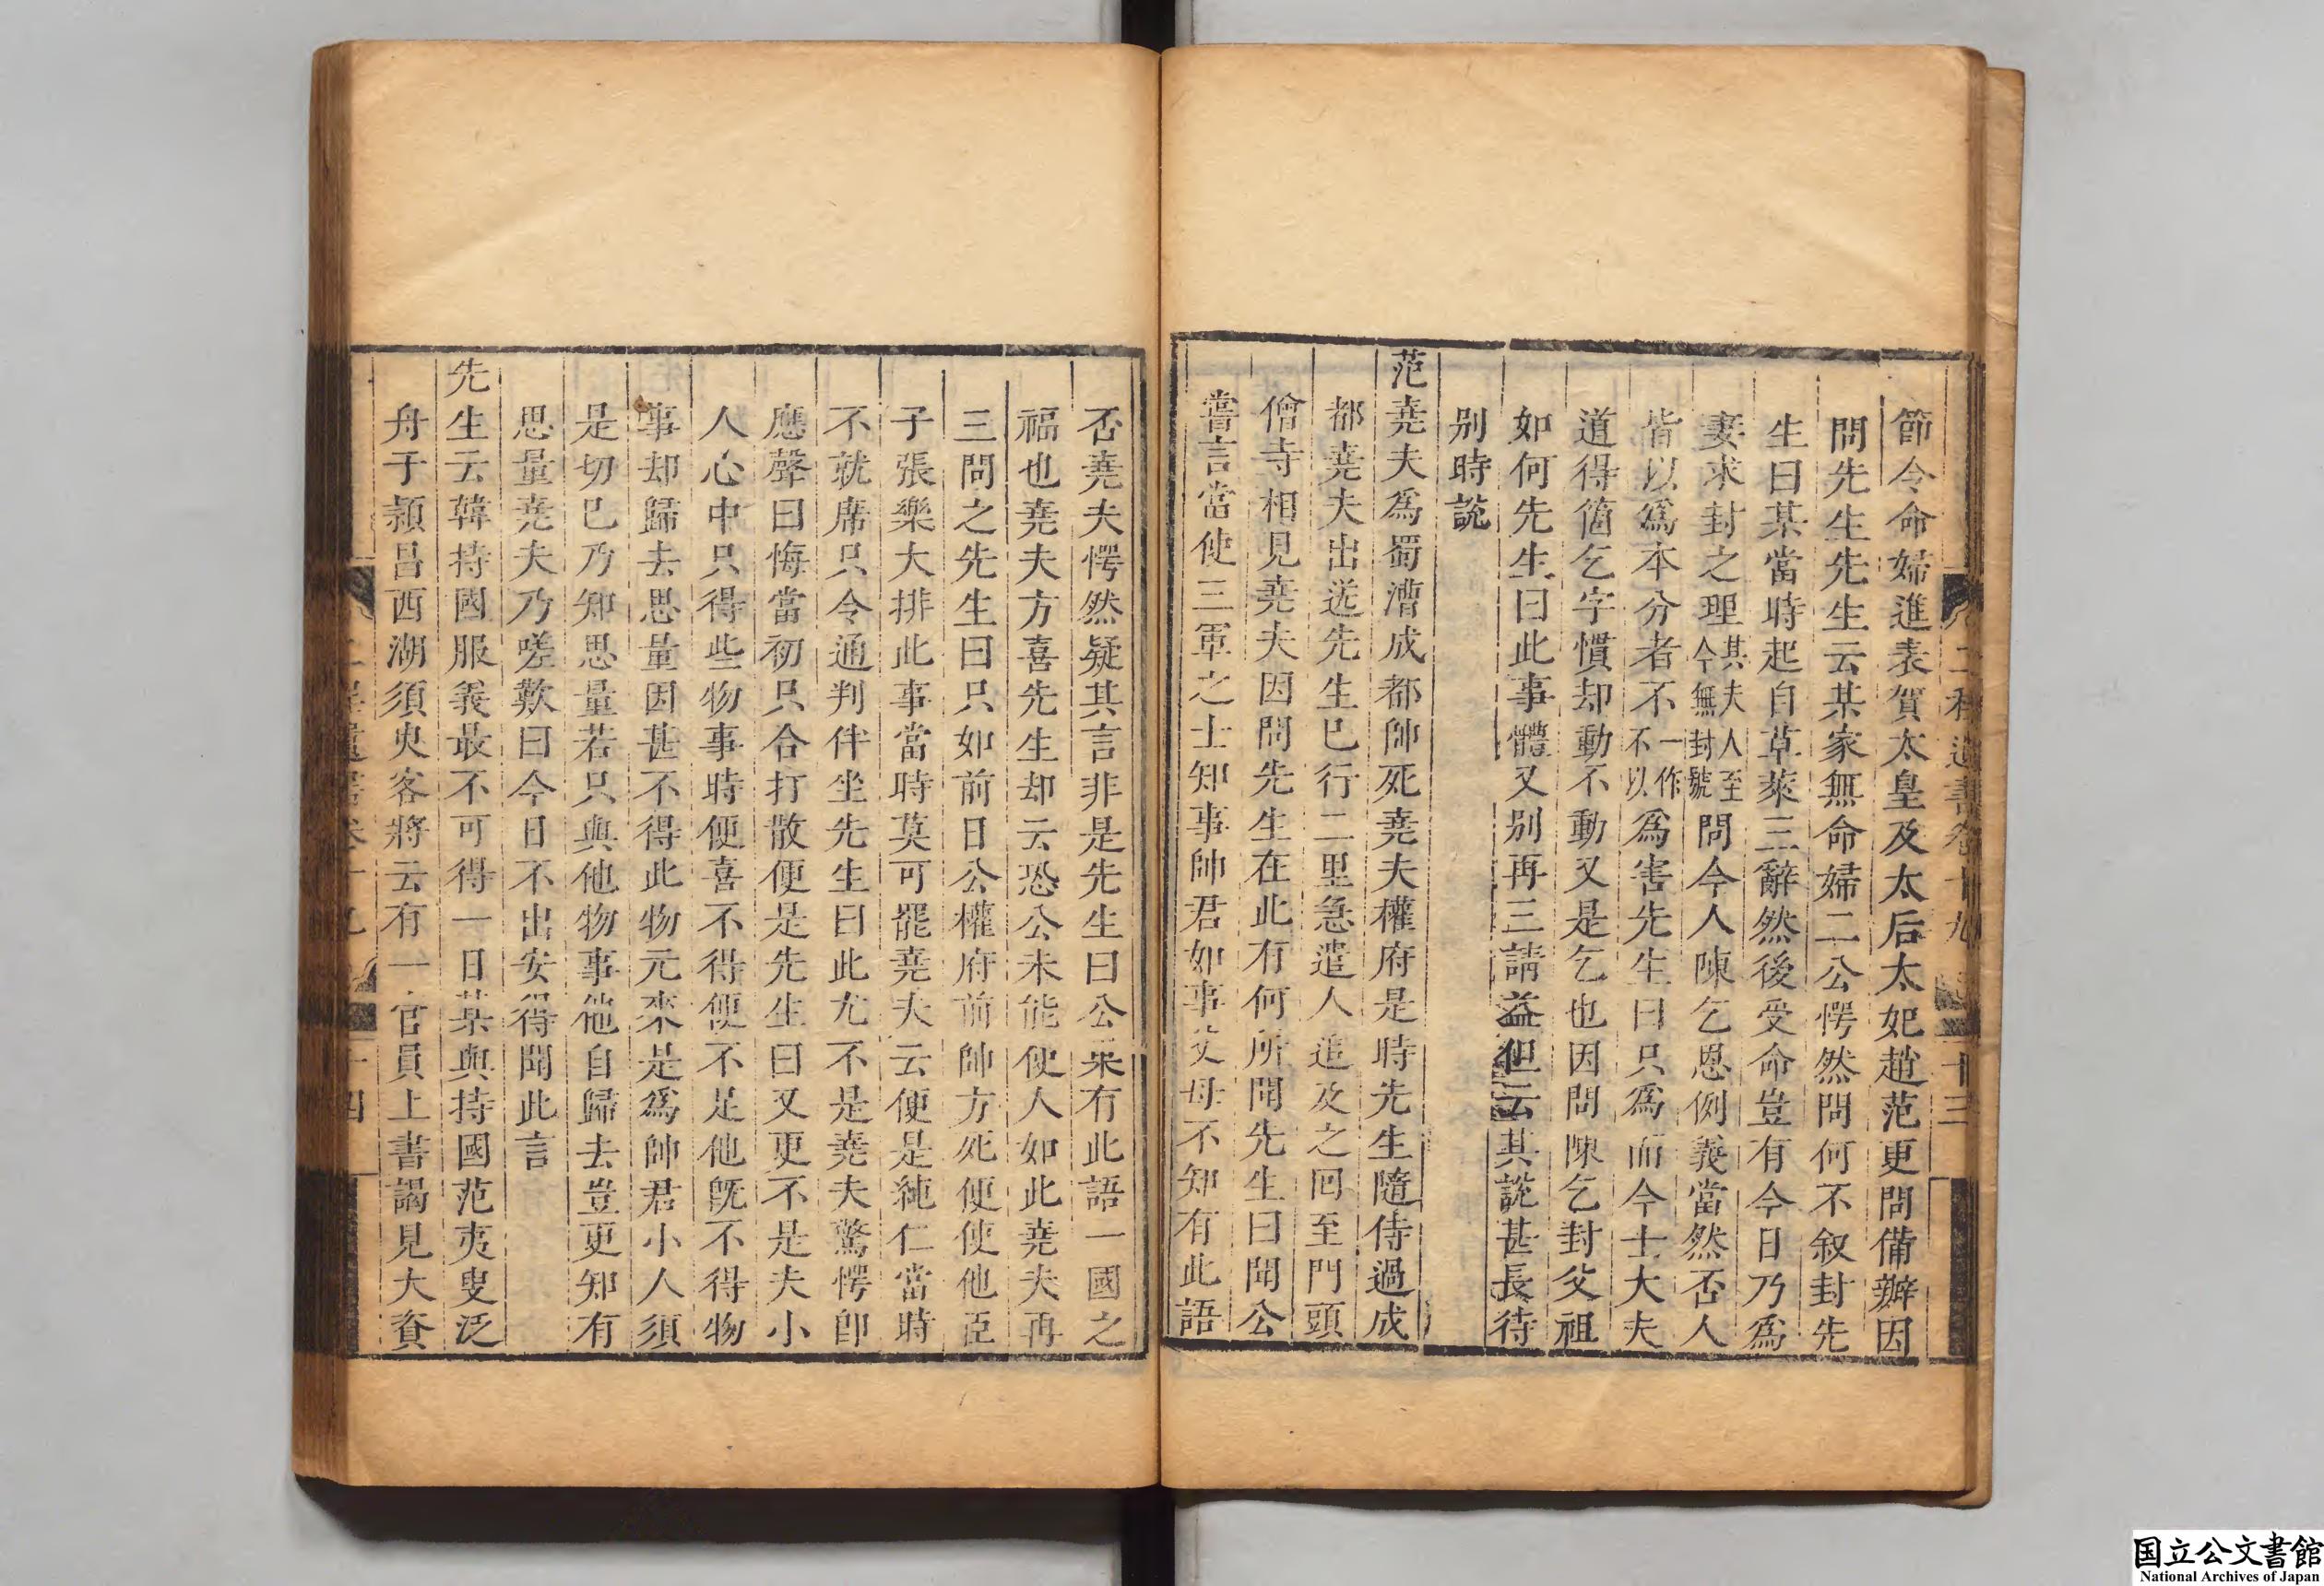 二程遺書卷十九 十三
節令命婦進表賀太皇及太后太妃趙范更問備辦因
問先生先生云某家無命婦二公愕然問何不叙封先
生曰某當時起自草萊三辭然後受命豈有今日乃爲
妻求封之理其夫人至今無封號問今人陳乞恩例義當然否人
皆以爲本分者不一作不以爲害先生曰只爲而今士大夫
道得箇乞字慣却動不動又是乞也因問陳乞封父祖
如何先生曰此事體又别再三請益但云其說甚長待
别時說
范堯夫爲蜀漕成都帥死堯夫權府是時先生隨侍過成
都堯夫出送先生已行二里急遣人追及之回至門頭
僧寺相見堯夫因問先生在此有何所聞先生曰聞公
嘗言當使三軍之士知事帥君如事父母不知有此語
否堯夫愕然疑其言非是先生曰公果有此語一國之
福也堯夫方喜先生却云恐公未能使人如此堯夫再
三問之先生曰只如前日公權府前帥方死便使他臣
子張樂大排此事當時莫可罷堯夫云便是純仁當時
不就席只令通判伴坐先生曰此尤不是堯夫驚愕即
應聲曰悔當初只合打散便是先生曰又更不是夫小
人心中只得些物事時便喜不得便不足他既不得物
事却歸去思量因甚不得此物元來是爲帥君小人須
是切己乃知思量若只與他物事他自歸去豈更知有
思量堯夫乃嗟歎曰今日不出安得聞此言
先生云韓持國服義最不可得一日某與持國范夷叟泛
舟于潁昌西湖須臾客將云有一官員上書謁見大資
二程遺書卷十九 十四
国立公文書館
National Archives of Japan